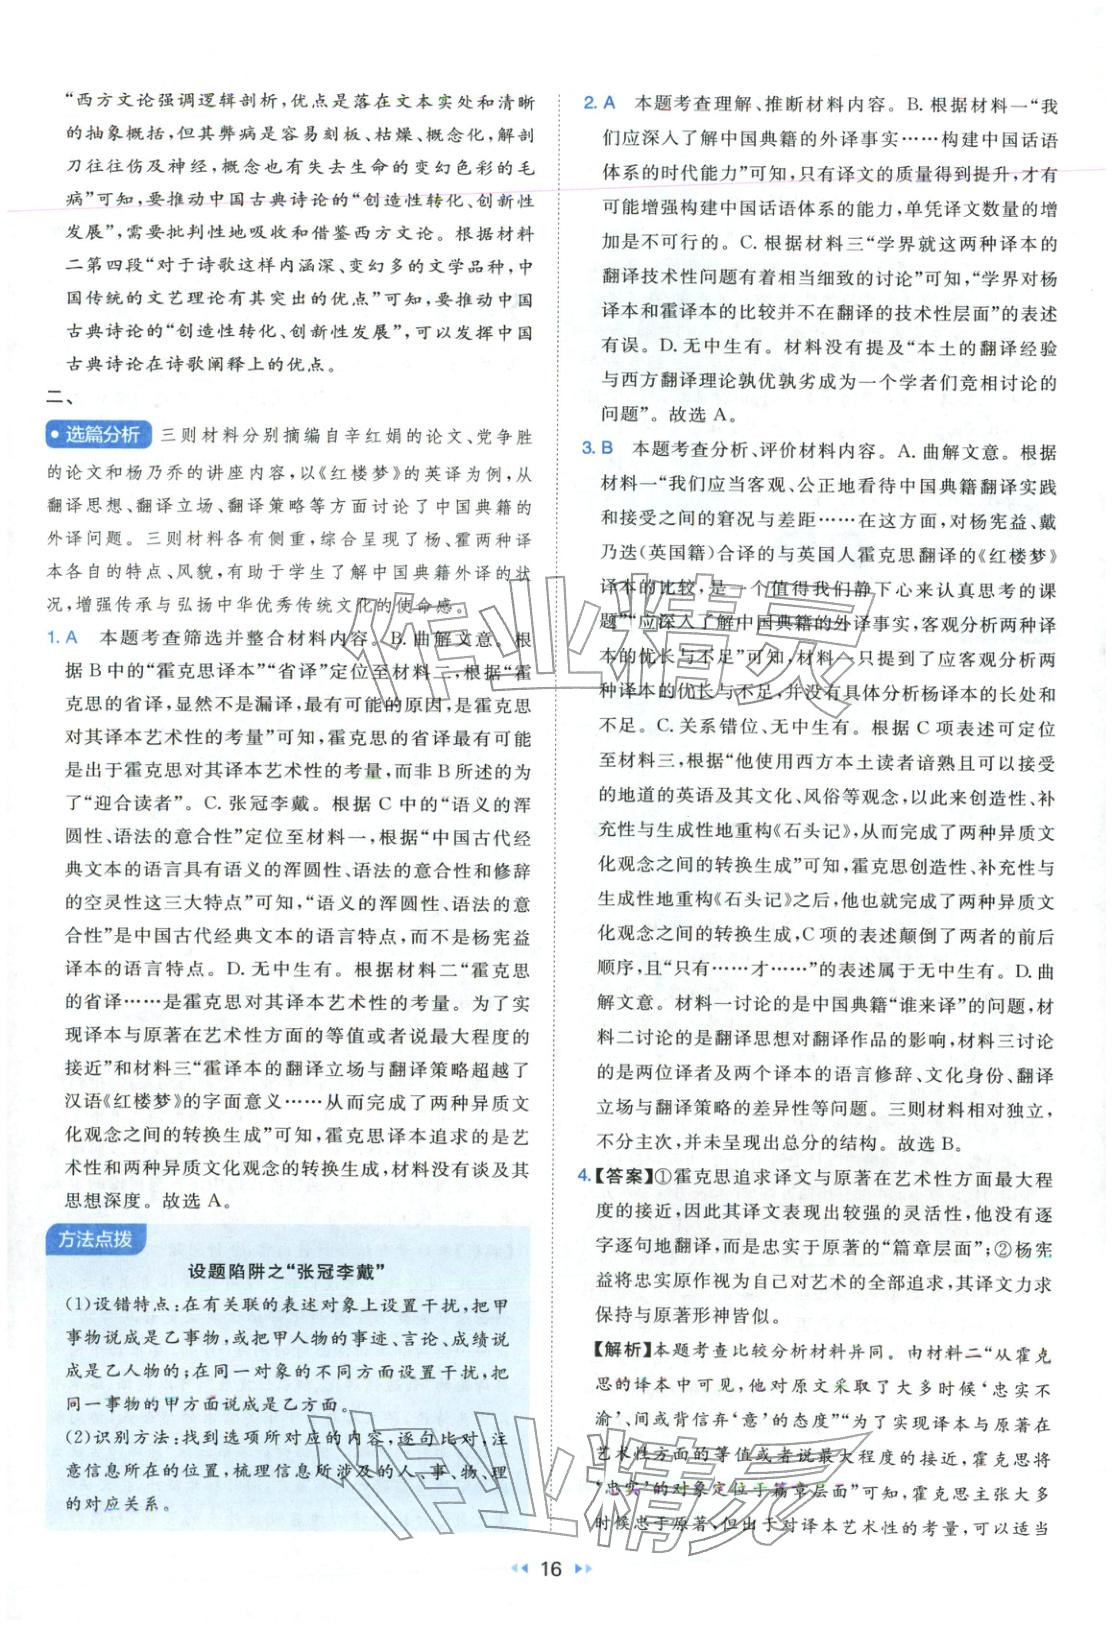 “西方文论强调逻辑剖析，优点是落在文本实处和清晰
的抽象概括，但其弊病是容易刻板、枯燥、概念化，解剖
刀往往伤及神经，概念也有失去生命的变幻色彩的毛
病”可知，要推动中国古典诗论的“创造性转化、创新性
发展”，需要批判性地吸收和借鉴西方文论。根据材料
二第四段“对于诗歌这样内涵深、变幻多的文学品种，中
国传统的文艺理论有其突出的优点”可知，要推动中国
古典诗论的“创造性转化、创新性发展”，可以发挥中国
古典诗论在诗歌阐释上的优点。
二、
选篇分析 三则材料分别摘编自辛红娟的论文、党争胜
的论文和杨乃乔的讲座内容，以《红楼梦》的英译为例，从
翻译思想、翻译立场、翻译策略等方面讨论了中国典籍的
外译问题。三则材料各有侧重，综合呈现了杨、霍两种译
本各自的特点、风貌，有助于学生了解中国典籍外译的状
况，增强传承与弘扬中华优秀传统文化的使命感。
1. A 本题考查筛选并整合材料内容。B. 曲解文意。根
据 B 中的“霍克思译本”“省译”定位至材料二，根据“霍
克思的省译，显然不是漏译，最有可能的原因，是霍克思
对其译本艺术性的考量”可知，霍克思的省译最有可能
是出于霍克思对其译本艺术性的考量，而非 B 所述的为
了“迎合读者”。C. 张冠李戴。根据 C 中的“语义的浑
圆性、语法的意合性”定位至材料一，根据“中国古代经
典文本的语言具有语义的浑圆性、语法的意合性和修辞
的空灵性这三大特点”可知，“语义的浑圆性、语法的意
合性”是中国古代经典文本的语言特点，而不是杨宪益
译本的语言特点。D. 无中生有。根据材料二“霍克思
的省译……是霍克思对其译本艺术性的考量。为了实
现译本与原著在艺术性方面的等值或者说最大程度的
接近”和材料三“霍译本的翻译立场与翻译策略超越了
汉语《红楼梦》的字面意义……从而完成了两种异质文
化观念之间的转换生成”可知，霍克思译本追求的是艺
术性和两种异质文化观念的转换生成，材料没有谈及其
思想深度。故选 A。
方法点拨
设题陷阱之“张冠李戴”
(1)设错特点：在有关联的表述对象上设置干扰，把甲
事物说成是乙事物，或把甲人物的事迹、言论、成绩说
成是乙人物的；在同一对象的不同方面设置干扰，把
同一事物的甲方面说成是乙方面。
(2)识别方法：找到选项所对应的内容，逐句比对，注
意信息所在的位置，梳理信息所涉及的人、事、物、理
的对应关系。
2. A 本题考查理解、推断材料内容。B. 根据材料一“我
们应深入了解中国典籍的外译事实……构建中国话语
体系的时代能力”可知，只有译文的质量得到提升，才有
可能增强构建中国话语体系的能力，单凭译文数量的增
加是不可行的。C. 根据材料三“学界就这两种译本的
翻译技术性问题有着相当细致的讨论”可知，“学界对杨
译本和霍译本的比较并不在翻译的技术性层面”的表述
有误。D. 无中生有。材料没有提及“本土的翻译经验
与西方翻译理论孰优孰劣成为一个学者们竞相讨论的
问题”。故选 A。
3. B 本题考查分析、评价材料内容。A. 曲解文意。根据
材料一“我们应当客观、公正地看待中国典籍翻译实践
和接受之间的窘况与差距……在这方面，对杨宪益、戴
乃迭(英国籍)合译的与英国人霍克思翻译的《红楼梦》
译本的比较，是一个值得我们静下心来认真思考的课
题”“应深入了解中国典籍的外译事实，客观分析两种译
本的优长与不足”可知，材料一只提到了应客观分析两
种译本的优长与不足，并没有具体分析杨译本的长处和
不足。C. 关系错位、无中生有。根据 C 项表述可定位
至材料三，根据“他使用西方本土读者谙熟且可以接受
的地道的英语及其文化、风俗等观念，以此来创造性、补
充性与生成性地重构《石头记》，从而完成了两种异质文
化观念之间的转换生成”可知，霍克思创造性、补充性与
生成性地重构《石头记》之后，他也就完成了两种异质文
化观念之间的转换生成，C 项的表述颠倒了两者的前后
顺序，且“只有……才……”的表述属于无中生有。D. 曲
解文意。材料一讨论的是中国典籍“谁来译”的问题，材
料二讨论的是翻译思想对翻译作品的影响，材料三讨论
的是两位译者及两个译本的语言修辞、文化身份、翻译
立场与翻译策略的差异性等问题。三则材料相对独立，
不分主次，并未呈现出总分的结构。故选 B。
4.【答案】①霍克思追求译文与原著在艺术性方面最大程
度的接近，因此其译文表现出较强的灵活性，他没有逐
字逐句地翻译，而是忠实于原著的“篇章层面”；②杨宪
益将忠实原作视为自己对艺术的全部追求，其译文力求
保持与原著形神皆似。
【解析】本题考查比较分析材料异同。由材料二“从霍克
思的译本中可见，他对原文采取了大多时候‘忠实不
渝’、间或背信弃‘意’的态度”“为了实现译本与原著在
艺术性方面的等值或者说最大程度的接近，霍克思将
‘忠实’的对象定位于篇章层面”可知，霍克思主张大多
时候忠于原著、但出于对译本艺术性的考量，可以适当
16
作业精灵
作业精灵